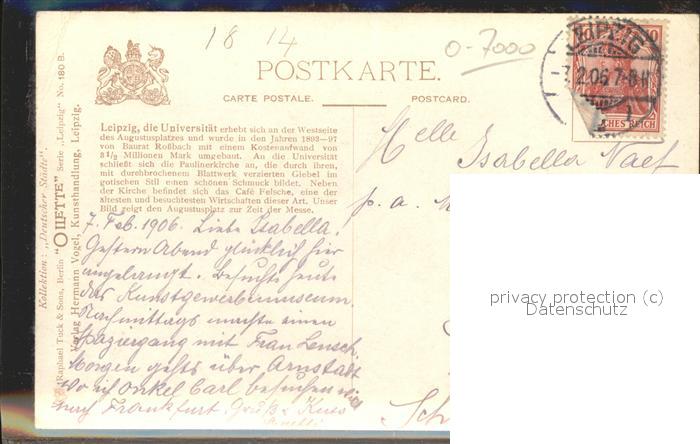 18 14
0-7000
POSTKARTE.
CARTE POSTALE.
POSTCARD.
LEIPZIG
7.2.06.7-8
10
CHES REICH
Kollektion: „Deutscher Städte".
Raphael Tuck & Sons, Berlin "OILETTE" Serie „Leipzig" No. 180 B.
Verlag Hermann Vogel, Kunsthandlung, Leipzig.
Leipzig, die Universität erhebt sich an der Westseite
des Augustusplatzes und wurde in den Jahren 1893—97
von Baurat Roßbach mit einem Kostenaufwand von
8½ Millionen Mark umgebaut. An die Universität
schließt sich die Paulinerkirche an, die durch ihren,
mit durchbrochenem Blattwerk verzierten Giebel im
gotischen Stil einen schönen Schmuck bildet. Neben
der Kirche befindet sich das Café Felsche, eine der
ältesten und besuchtesten Wirtschaften dieser Art. Unser
Bild zeigt den Augustusplatz zur Zeit der Messe.
7. Feb. 1906. Liebe Isabella!
Gestern Abend glücklich hier
angelangt. Besuchte heute
das Kunstgewerbemuseum.
Nachmittags machte einen
Spaziergang mit Frau Lensch.
Morgen gehts über Arnstadt
wo ich Onkel Carl besuchen
nach Frankfurt. Gruß & Kuss
Isabella Naef
p. a.
Sch
privacy protection (c)
Datenschutz